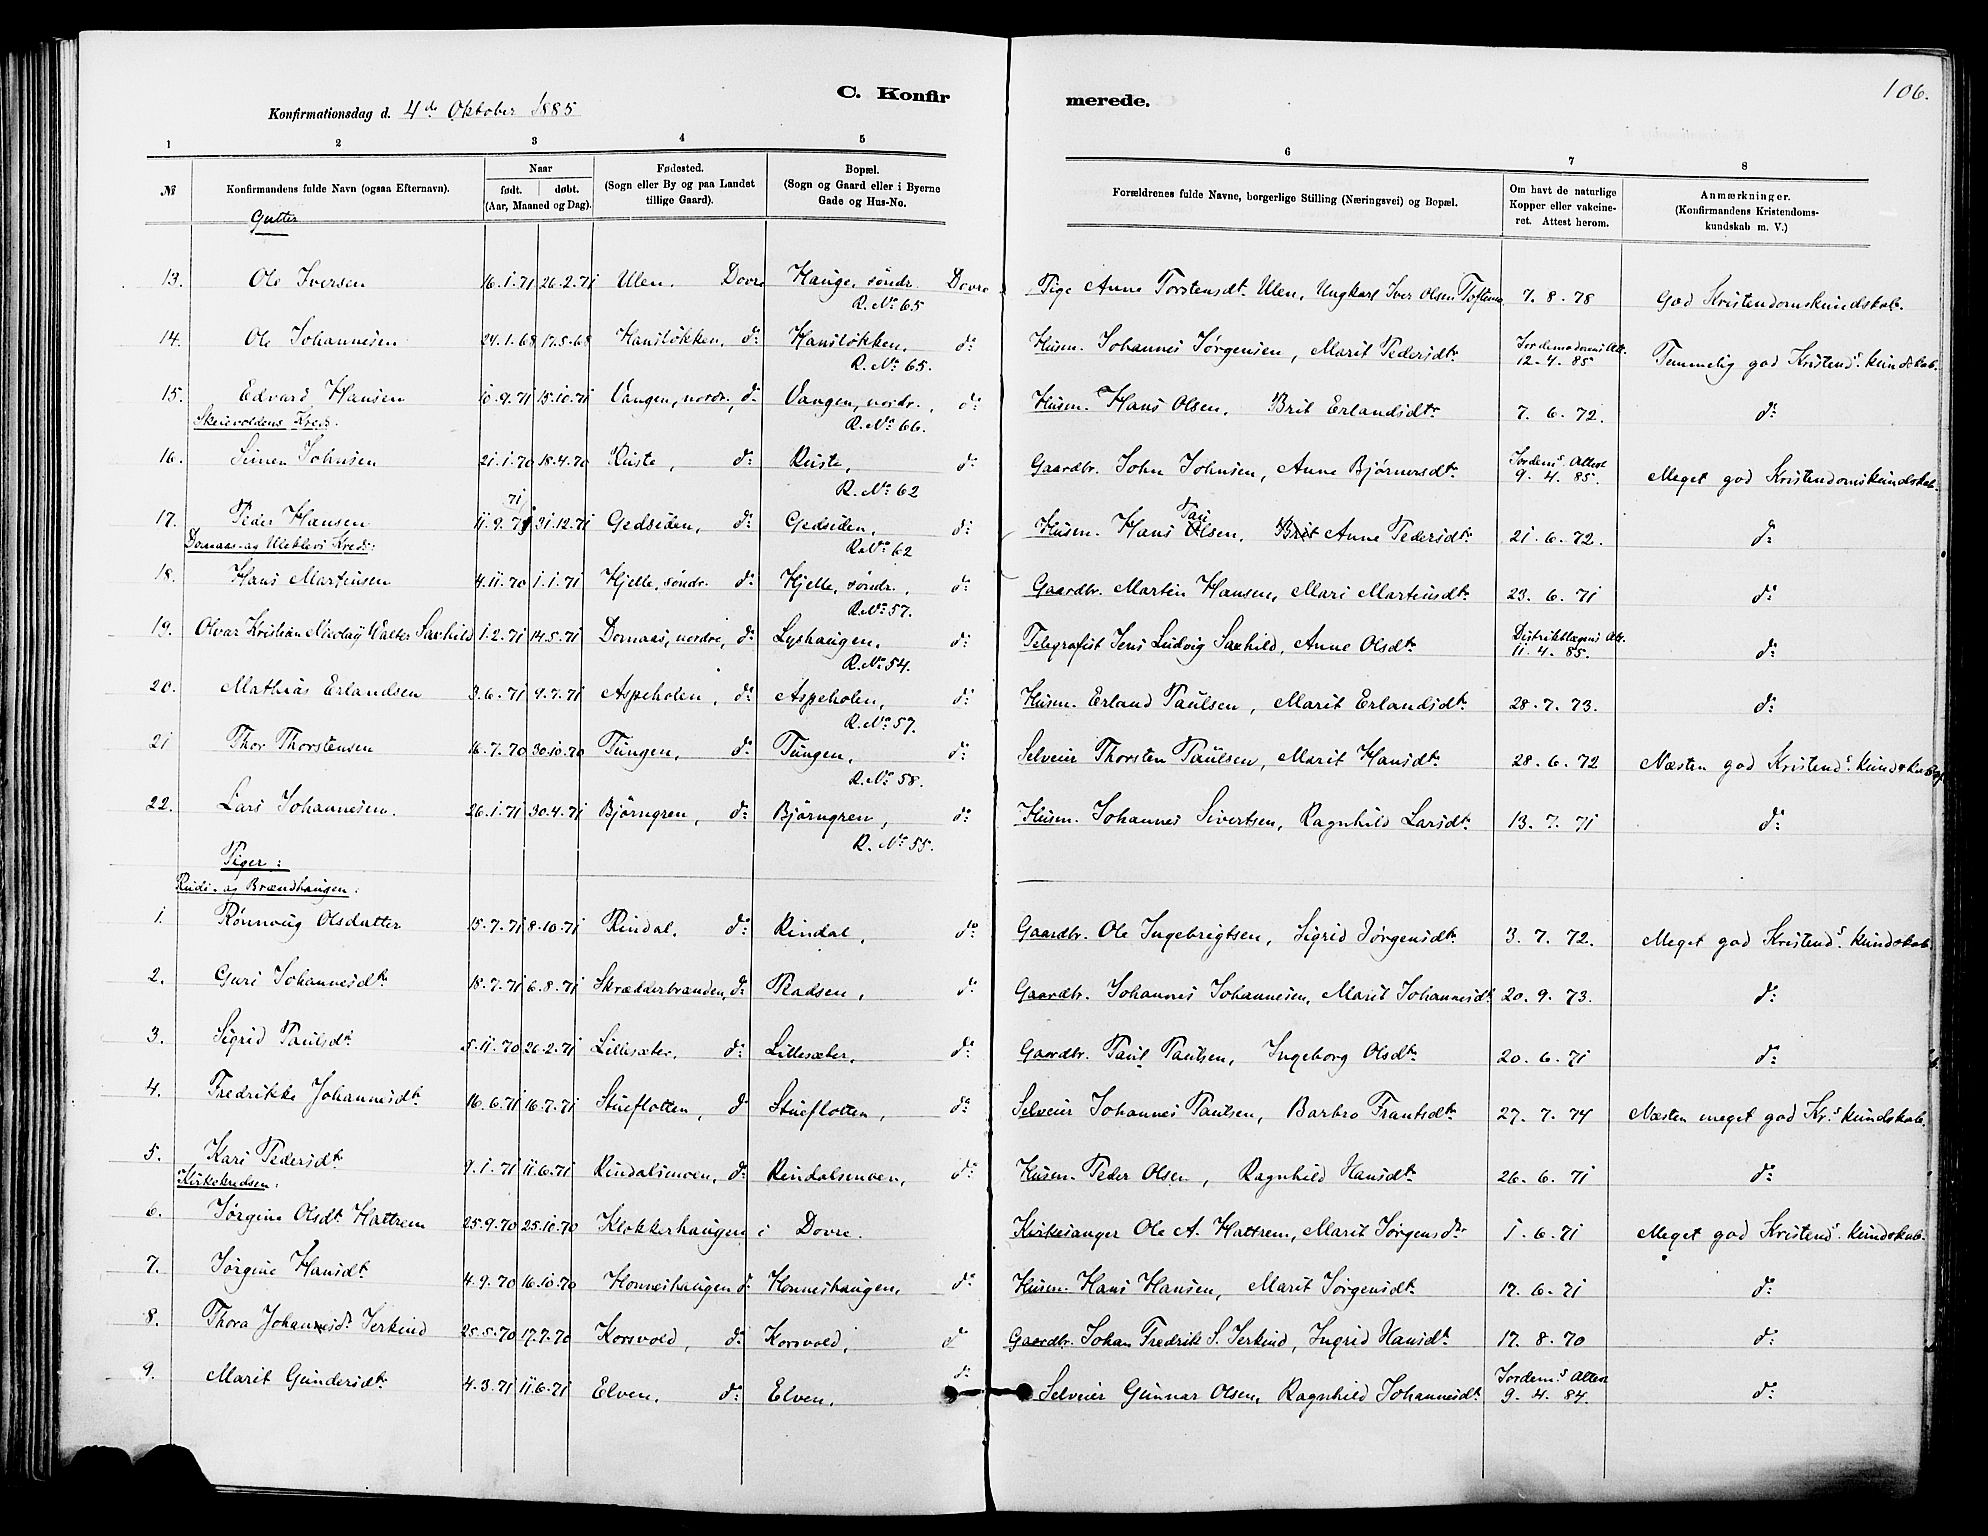 106.
C. Konfir merede.
Konfirmationsdag d. 4de Oktober 1885
1 2 3 4 5 6 7 8
№ Konfirmandens fulde Navn (ogsaa Efternavn). Naar født. døbt. (Aar, Maaned og Dag). Fødested. (Sogn eller By og paa Landet tillige Gaard). Bopæl. (Sogn og Gaard eller i Byerne Gade og Hus-No. Forældrenes fulde Navne, borgerlige Stilling (Næringsvei) og Bopæl. Om havt de naturlige Kopper eller vakcineret. Attest herom. Anmærkninger. (Konfirmandens Kristendomskundskab m. V.)
Gutter
13. Ole Iversen 16.1.71 26.2.71 Ulen. Dovre Hauge, søndr. Dovre Pige Anne Torstensdt. Ulen, Ungkarl Iver Olsen Toftemo 7. 8. 78 God Kristendomskundskab.
R. No 65
14. Ole Johannesen 24.1.68 17.5.68 Hansløkken, do: Hansløkken, do: Husm. Johannes Jørgensen, Marit Pedersdtr. Jordemoderens Att. 12-4.85 Temmelig god Kristends. kundskab.
R. No 65.
15. Edvard Hansen 10.9.71 15.10.71 Vangen, nordr., do: Vangen, nordr., do: Husm. Hans Olsen, Brit Erlandsdtr. 7. 6. 72. do:
R. No 66.
Skeievoldens Kreds.
16. Simen Johnsen 21.1.70 18.4.70 Ruste, do: Ruste, do: Gaardbr. John Johnsen, Anne Bjørnersdtr. Jordems. Attest 9. 4. 85. Meget god Kristendomskundskab.
R. No 62
17. Peder Hansen 11.9.71 31.12.71 Gedsiden, do: Gedsiden, do: Husm. Hans Olsen, Brit Anne Pedersdtr. 21. 6. 72. do:
R. No 62
Domaas- og Uleklevs Kreds:
18. Hans Martinsen 4.11.70 1.1.71 Hjelle, søndr. do: Hjelle, søndr., do: Gaardbr. Martin Hansen, Mari Martinsdtr. 23. 6. 71 do:
R. No 57.
19. Olvar Kristian Nicolay Walter Saxhild 1.2.71 14.5.71 Domaas, nordre, do: Lyshaugen, do: Telegrafist Jens Ludvig Saxhild, Anne Olsdtr. Distriktslægens Att. 11. 4. 85. do:
R. No 54.
20. Mathias Erlandsen 3.6.71 4.7.71 Aspeholen, do: Aspeholen, do: Husm. Erland Paulsen, Marit Erlandsdtr. 28. 7. 73. do:
R. No 57.
21 Thor Thorstensen 16.7.70 30.10.70 Tungen, do: Tungen, do: Selveier Thorsten Paulsen, Marit Hansdtr. 28. 6. 72 Næsten god Kristends. kundskab
R. No 58.
22. Lars Johannesen. 26.1.71 30.4.71 Bjørngren, do: Bjørngren, do: Husm. Johannes Sivertsen, Ragnhild Larsdtr. 13. 7. 71 do:
R. No 55.
Piger:
Rinds- og Brændhaugen:
1. Rønnoug Olsdatter 15.7.71 8.10.71 Rindal, do: Rindal, do: Gaardbr. Ole Ingebrigtsen, Sigrid Jørgensdtr. 3. 7. 72. Meget god Kristends. kundskab.
2. Guri Johannesdtr 18.7.71 6.8.71 Skrædderbranden, do: Radsen, do: Gaardbr. Johannes Johannesen, Marit Johannesdtr 20. 9. 73. do:
3. Sigrid Paulsdtr 5.11.70 26.2.71 Lillesæter, do: Lillesæter, do: Gaardbr. Paul Paulsen, Ingeborg Olsdtr. 20. 6. 71 do:
4. Fredrikke Johannesdtr 16.6.71 16.7.71 Stueflotten, do Stueflotten, do: Selveier Johannes Paulsen, Barbro Frantsdtr. 27. 7. 74 Næsten meget god Krs. kundskab.
5. Kari Pedersdtr 9.1.71 11.6.71 Rindalsmoen, do: Rindalsmoen, do: Husm. Peder Olsen, Ragnhild Hansdtr. 26. 6. 71 do:
Kirkekredsen:
6. Jørgine Olsdt. Hattrem 25.9.70 25.10.70 Klokkerhaugen i Dovre. Kirkesanger Ole A. Hattrem, Marit Jørgensdtr 1. 6. 71 Meget god Kristends. kundskab.
7. Jørgine Hansdt. 4.9.70 16.10.70 Honneshaugen do: Honneshaugen, do: Husm. Hans Hansen, Marit Jørgensdtr. 17. 6. 71 do:
8. Thora Johannesdt. Jerkind 25.5.70 17.7.70 Korsvold, do: Korsvold, do Gaardbr. Johan Fredrik S. Jerkind, Ingrid Hansdtr. 17. 8. 70 do:
9. Marit Gundersdtr. 4.3.71 11.6.71 Elven, do: Elven, do: Selveier Gunnar Olsen, Ragnhild Johannesdtr. Jordems. Attest 9. 4. 84. do: